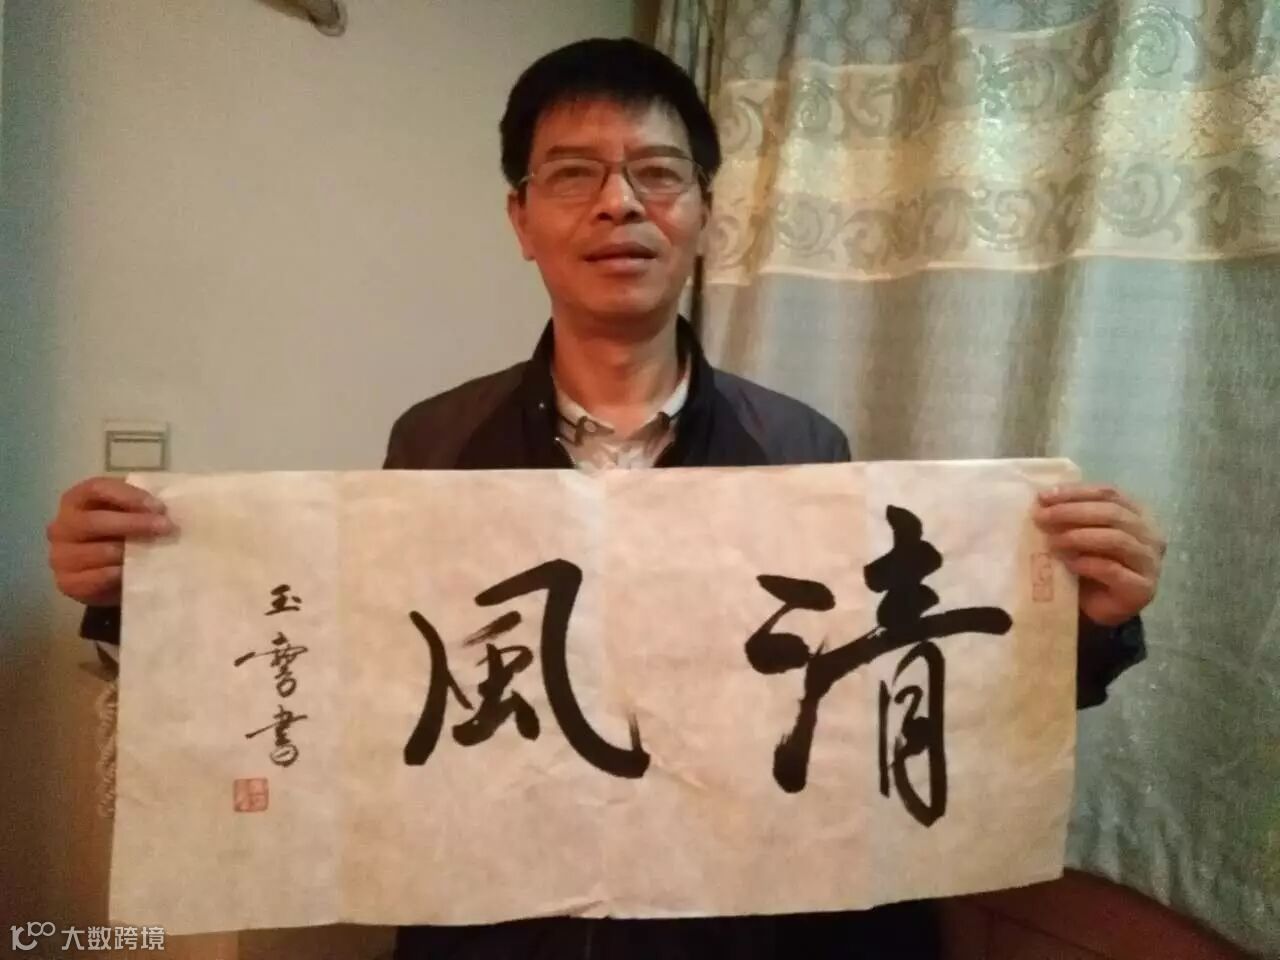 清風
玉雪書
大数跨境